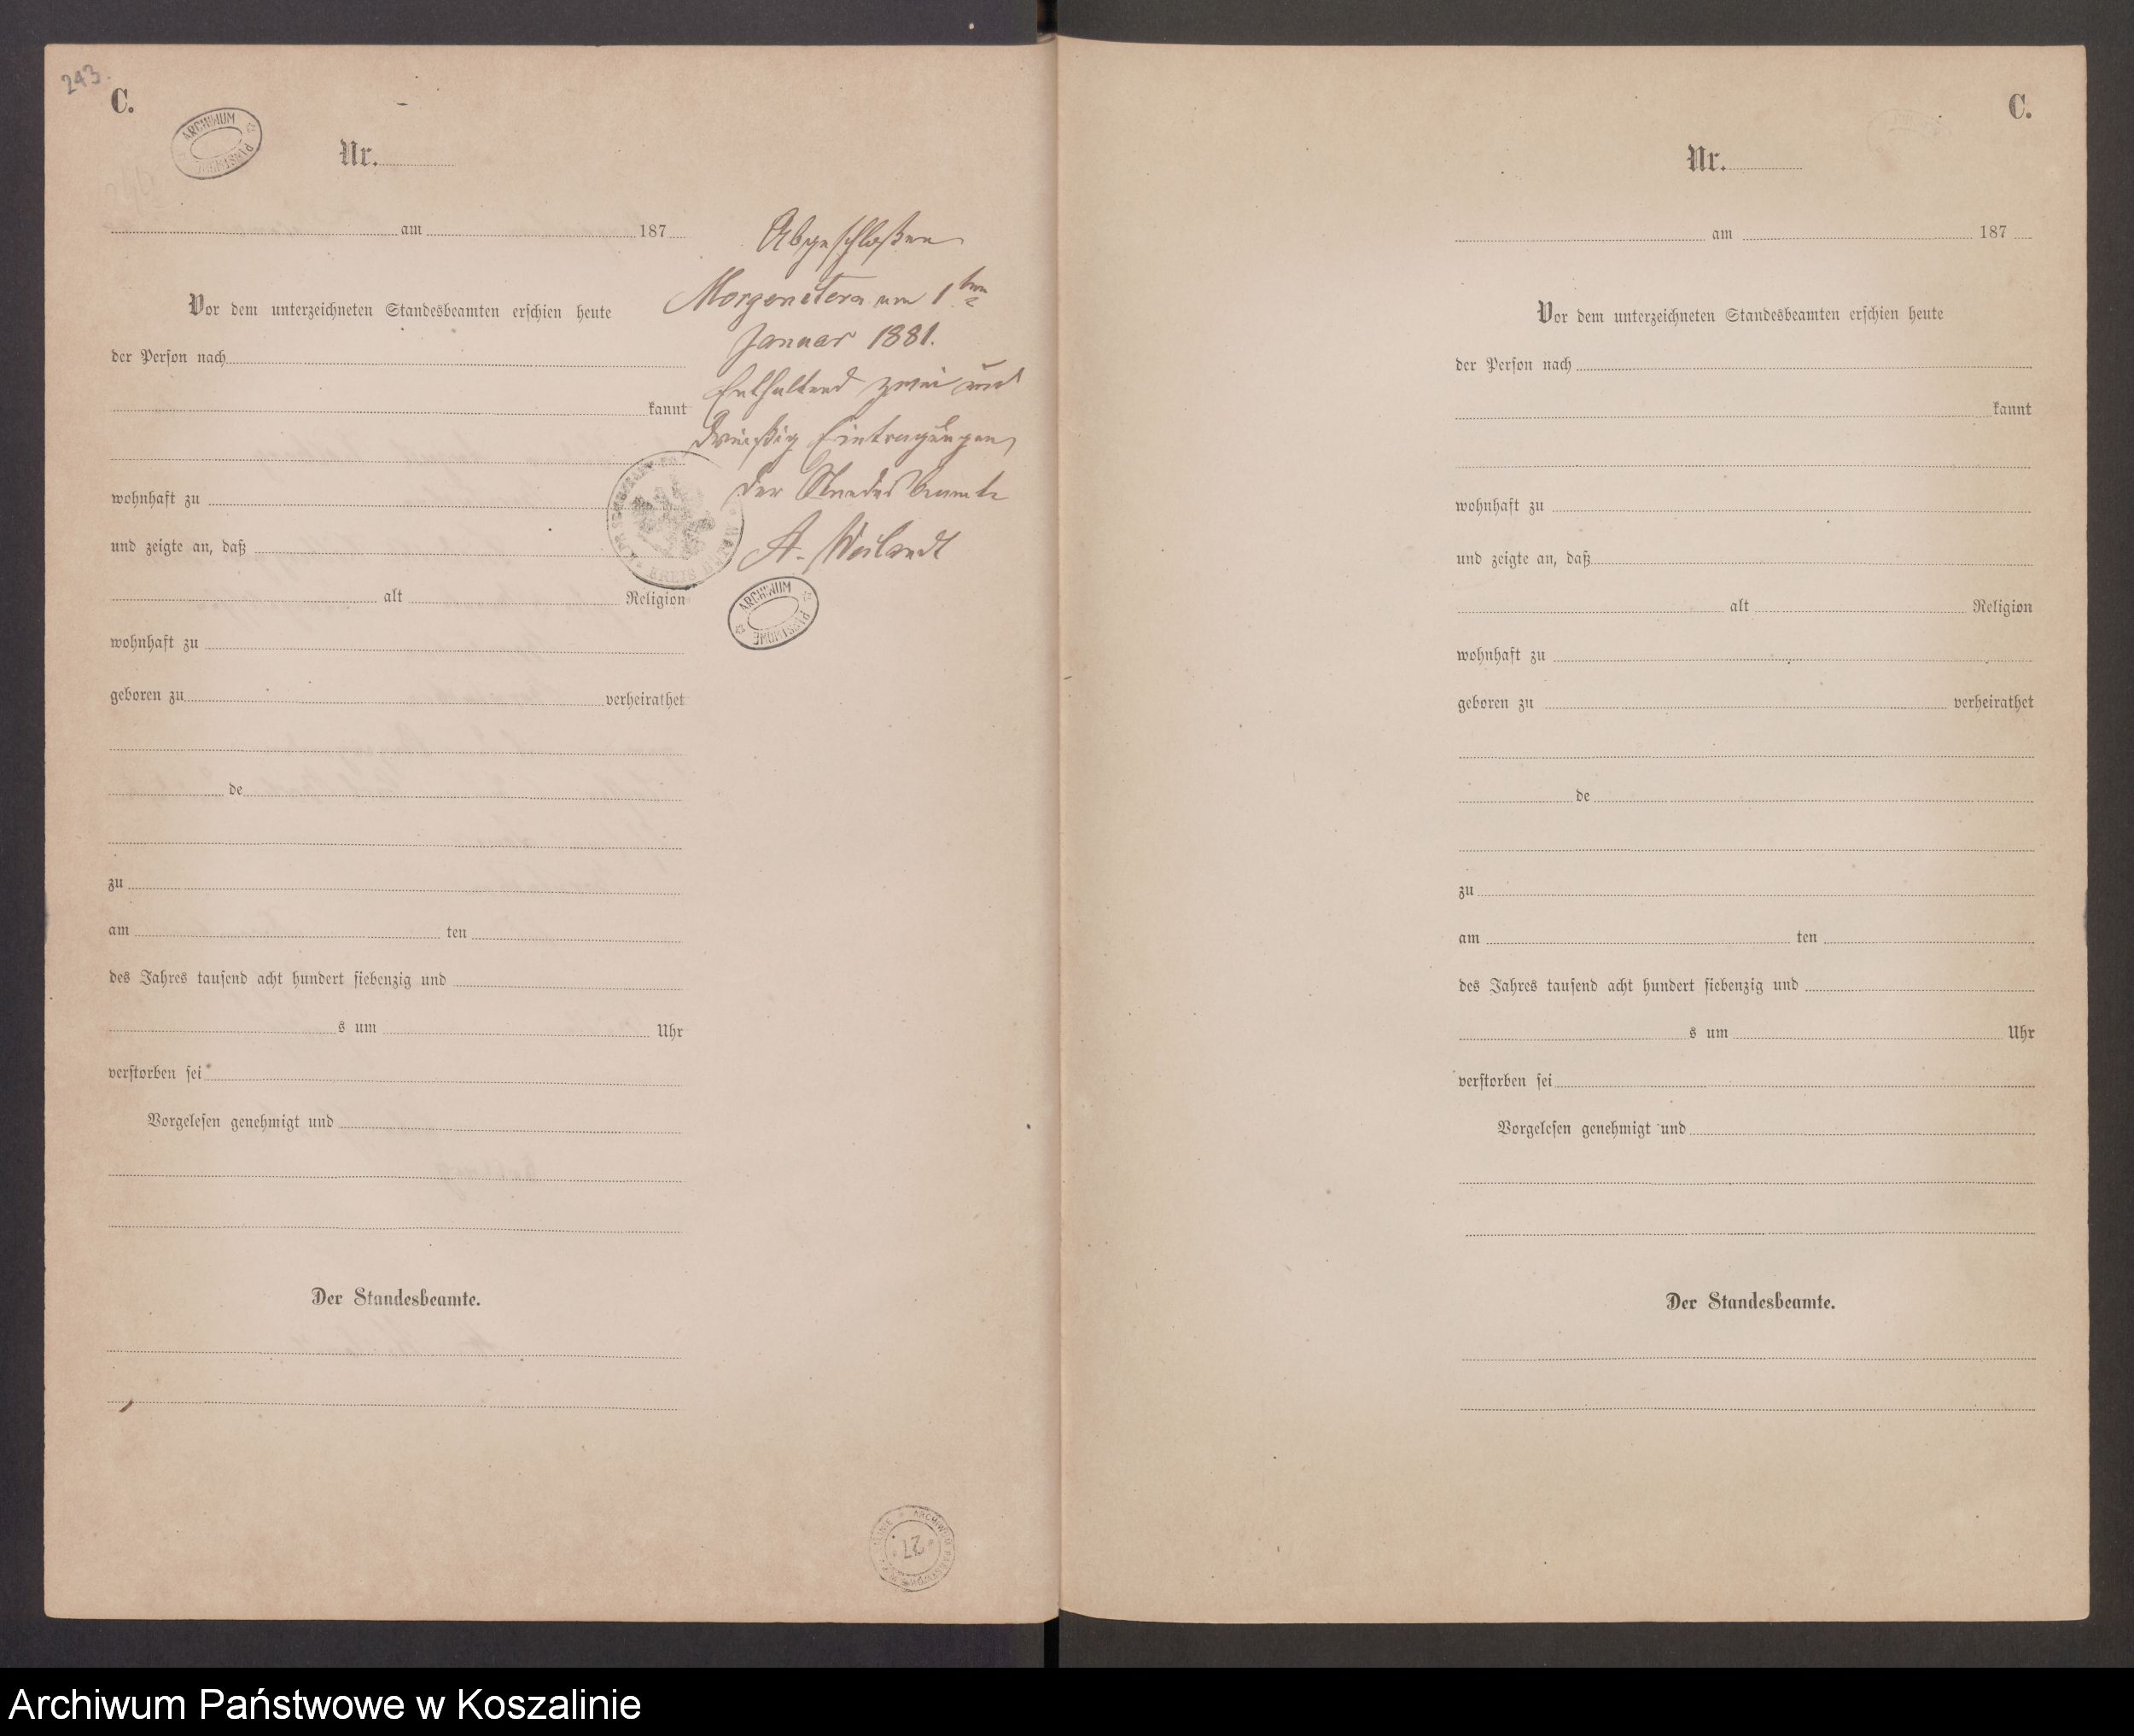 243.
C.
ARCHIWUM PAŃSTWOWE
Nr.
am 187
Vor dem unterzeichneten Standesbeamten erschien heute
der Person nach
kannt
wohnhaft zu
und zeigte an, daß
alt Religion
wohnhaft zu
geboren zu verheirathet
de
zu
am ten
des Jahres tausend acht hundert siebenzig und
s um Uhr
verstorben sei
Vorgelesen genehmigt und
Der Standesbeamte.
Abgeschloßen
Morgenstern am 1ten
Januar 1881.
Enthaltend zwei und
dreißig Eintragungen
Der Standesbeamte
A. Weilandt
KREIS
ARCHIWUM PAŃSTWOWE
27
C.
Nr.
am 187
Vor dem unterzeichneten Standesbeamten erschien heute
der Person nach
kannt
wohnhaft zu
und zeigte an, daß
alt Religion
wohnhaft zu
geboren zu verheirathet
de
zu
am ten
des Jahres tausend acht hundert siebenzig und
s um Uhr
verstorben sei
Vorgelesen genehmigt und
Der Standesbeamte.
Archiwum Państwowe w Koszalinie